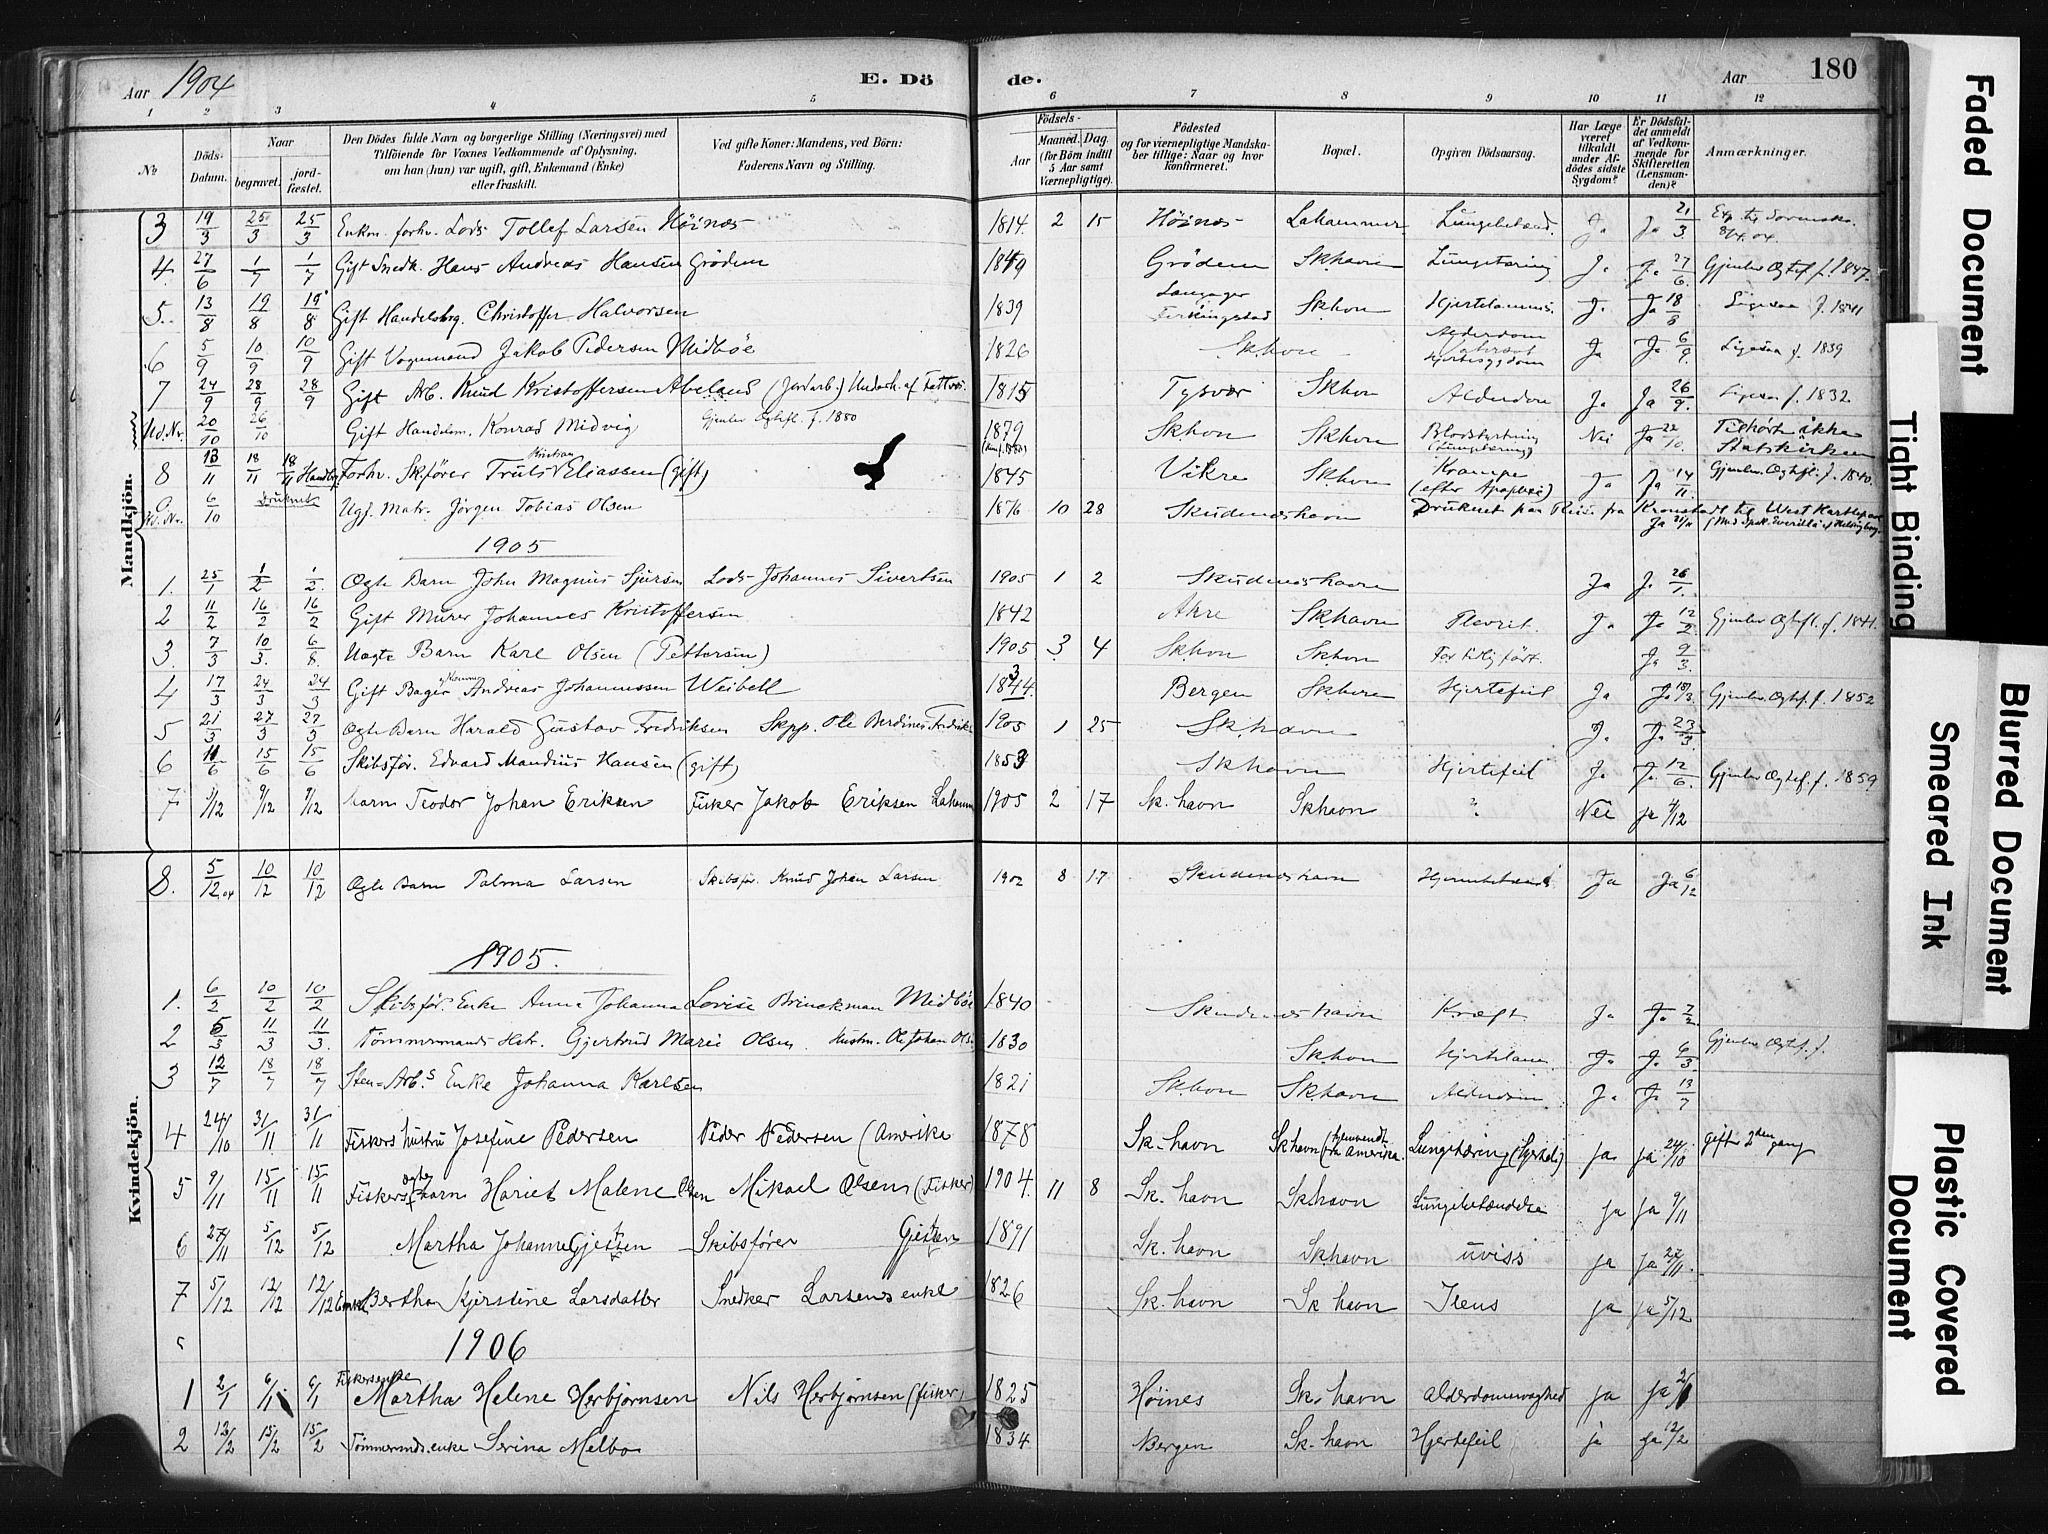 Aar 1904 E. Dö de. Aar 180
1 2 3 4 5 6 7 8 9 10 11 12
№ Döds-Datum. Naar begravet. jord-fæstet. Den Dödes fulde Navn og borgerlige Stilling (Næringsvei) med Tilföiende for Voxnes Vedkommende af Oplysning, om han (hun) var ugift, gift, Enkemand (Enke) eller fraskilt. Ved gifte Koner: Mandens, ved Börn: Faderens Navn og Stilling. Födsels- Aar Maaned. Dag. (for Börn indtil 5 Aar samt Værnepligtige). Födested og for værnepligtige Mandskaber tillige: Naar og hvor konfirmeret. Bopæl. Opgiven Dödsaarsag. Har Læge været tilkaldt under Afdödes sidste Sygdom? Er Dödsfaldet anmeldt af Vedkommende for Skifteretten (Lensmanden)? Anmærkninger.
Mandkjön.
3 19/3 25/3 25/3 Enkm. forhv. Lods Tollef Larsen Höines 1814. 2 15 Höines Lahammer Lungebetænd. Ja Ja 21/3
4. 27/6 1/7 1/7 Gift Snedk. Hans Andreas Hansen Grödem 1849 Grödem Skhavn Lungetæring Ja Ja 27/6. Gjenlev. Ægtef. f. 1847.
5. 13/8 19/8 19/8 Gift Handelsbg. Christoffer Halvorsen 1839 Skhavn Hjertelammels. Ja Ja 18/8 Ligesaa f. 1841
6 5/9 10/9 10/9 Gift Vognmand Jakob Pedersen Midböe 1826 Skhavn Alderdom Hjertesygdom Ja Ja 6/9. Ligesaa f. 1839
7 24/9 28/9 28/9 Gift Arb. Knud Kristoffersen Abeland (Jordarb.) Underh. af Fattigv. 1815 Tysvær Skhavn Alderdom Ja Ja 26/9. Ligesaa f. 1832
Ud. Nr. 20/10 26/10 Gift Handelsm. Konrad Midvig Gjenlev. Ægtefl. f. 1880 1879 Skhavn Skhavn Blodstyrtning (Lungetæring) Nei Ja 22/10. Tilhörte ikke Statskirken
8 13/11 18/11 18/11 Forhv. Skförer Truls Kristian Eliassen (gift) 1845 Vikre Skhavn Krampe (efter Apoplexi) Ja Ja 14/11. Gjenlev. Ægtefl. f. 1840.
Ud. Nr. 6/10 druknet Ugf. Matr. Jörgen Tobias Olsen 1876 10 28 Skudeneshavn Druknet paa Reise fra Kronstadt til West Hartlepool
1905
1. 25/1 1/2 1/2 Ægte Barn John Magnus Sjursen Lods Johannes Sivertsen 1905 1 2 Skudeneshavn Ja Ja 26/1.
2 11/2 16/2 16/2 Gift Murer Johannes Kristoffersen 1842 Akre Skhavn Plevrit. Ja Ja 12/2. Gjenlev. Ægtefl. f. 1841.
3. 7/3 10/3. 6/8 Uægte Barn Karl Olsen (Pettersen) 1905 3 4 Skhavn Skhavn For tidlig födt. Ja 9/3.
4 17/3 24/3 24/3 Gift Bager Andreas Johannessen Weibell 1844. 3 Bergen Skhavn Hjertefeil Ja Ja 18/3. Gjenlev. Ægtef. f. 1852
5 21/3 27/3 27/3 Ægte Barn Harald Gustav Fredriksen Skpp. Ole Berdines Fredriksen 1905 1 25 Skhavn Ja. Ja 23/3.
6 11/6 15/6 15/6 Skibsför. Edvard Mandius Hansen (gift) 1853 Skhavn Hjertefeil Ja Ja. 12/6. Gjenlev. Ægtef. f. 1859
7 4/12 9/12 9/12 barn Teodor Johan Eriksen Fisker Jakob Eriksen Laham 1905 2 17 Sk. havn Skhavn ? Nei ja 4/12
Kvindekjön.
8. 5/12 04 10/12 10/12 Ægte Barn Palma Larsen Skibsför. Knud Johan Larsen 1902 8 17 Skudeneshavn Hjernebetænd. Ja Ja 6/12
1905.
1. 6/2 10/2 10/2 Skibsför. Enke Anna Johanna Lovise Brinckman Midböe 1840 Skudeneshavn Kræft. Ja Ja 7/2.
2 5/3 11/3 11/3. Tömmermands Hstr. Gjertrud Marie Olsen. Husm. Ole Johan Ols 1830 Skhavn Hjertelam. Ja Ja 6/3 Gjenlev. Ægtef. f.
3 12/7 18/7 18/7 Sten-Arb.s Enke Johanna Karlsen 1821 Skhavn Skhavn Alderdom Ja Ja 13/7
4 24/10 31/11 31/11 Fiskers hustru Josefine Pedersen Peder Pedersen (Amerika 1878 Sk. havn Skhavn (hjemvendt fra Amerika. Lungetæring Ja ja 24/10 gifter 2den gang
5 9/11 15/11 15/11 Fiskers ægte barn Hariet Malene Olsen Mikael Olsen (Fisker) 1904. 11 8 Sk. havn Skhavn Lungebetændelse ja ja 9/11
6 27/11 5/12 5/12 Martha Johanne Gjessen Skibsförer 1891 Sk. havn Skhavn uviss ja ja 27/11.
7 5/12 12/12 12/12 Enke Bertha Kjerstine Larsdatter Snedker Larsens enke 1826 Sk. havn Sk havn Ileus ja ja 5/12
1906
1 2/1 6/1 6/1 Fiskersenke Martha Helene Herbjørnsen Nils Herbjørnsen (fisker) 1825 Höines Sk. havn Alderdomssvaghed ja ja 2/1
2 12/2 15/2 15/2 Tömmermds. enke Serina Melbo 1834 Bergen Sk. havn Hjertefeil ja ja 12/2
Faded Document
Tight Binding
Blurred Document
Smeared Ink
Plastic Covered Document